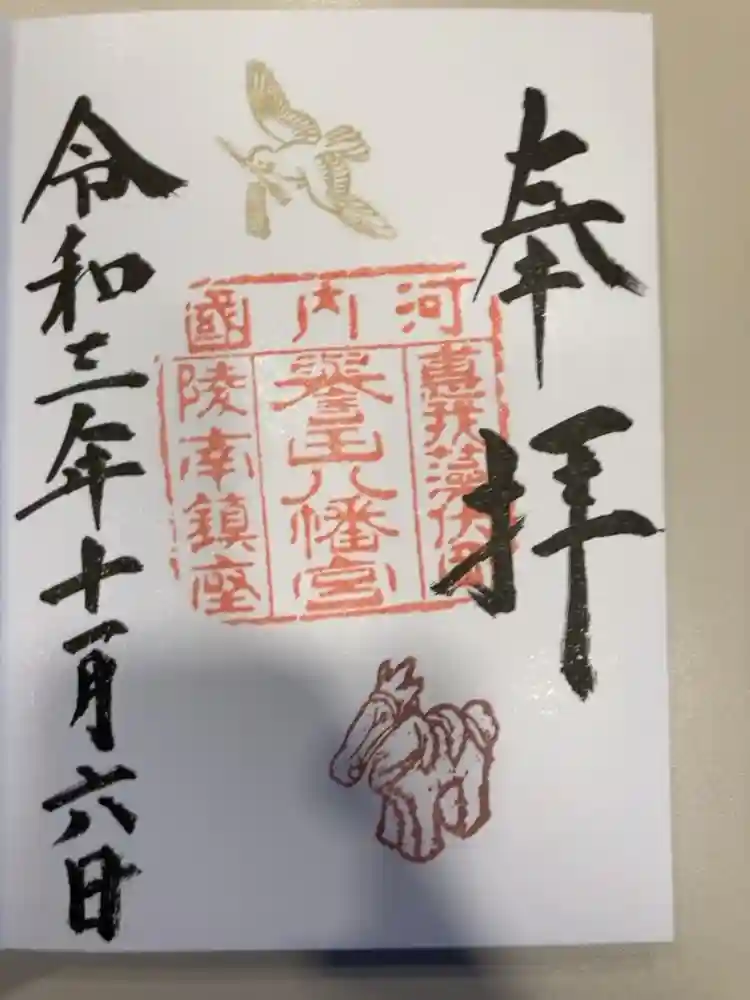 奉拝
河内國
惠我藻伏岡
譽田八幡宮
陵南鎮座
令和三年十一月六日